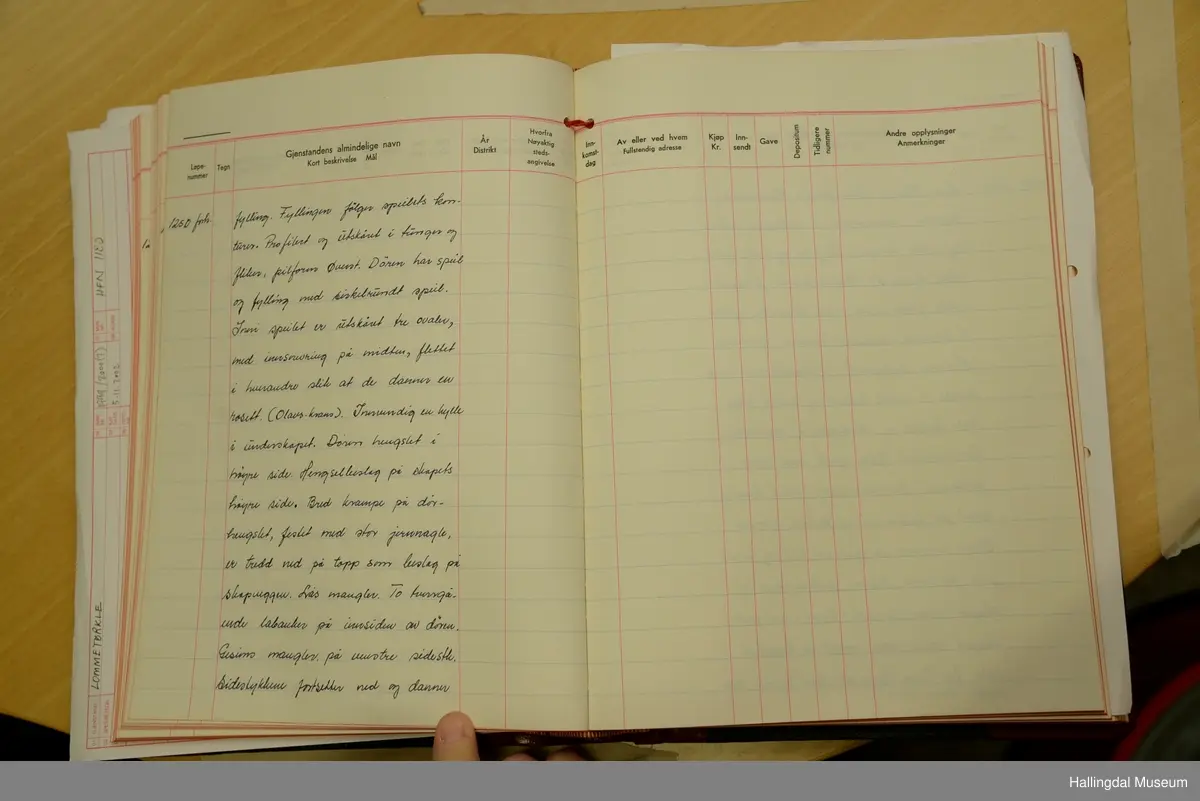 Løpe-
nummer
Tegn
Gjenstandens almindelige navn
Kort beskrivelse Mål
År
Distrikt
Hvorfra
Nøyaktig
steds-
angivelse
Inn-
komst-
dag
Av eller ved hvem
Fullstendig adresse
Kjøp
Kr.
Inn-
sendt
Gave
Depositum
Tidligere
nummer
Andre opplysninger
Anmerkninger
1250 forts.
fylling. Fyllingen følger speilets kon-
turer. Profilert og utskåret i tunger og
fliker, pilform øverst. Dören har speil
og fylling med sirkelrundt speil.
Inni speilet er utskåret tre ovaler,
med innsnevring på midten, flettet
i hverandre slik at de danner en
rosett. (Olavs-krans). Innvendig en hylle
i underskapet. Dören hengslet i
høyre side. Hengselbeslag på skapets
høyre side. Bred krampe på dör-
hengslet, festet med stor jernnagle,
er tredd ned på tapp som beslag på
skapveggen. Lås mangler. To turngå-
ende labanker på innsiden av dören.
Gesims mangler på venstre sidestk.
Sidestykkene fortsetter ned og danner
LOMMETØRKLE
HFN 1180
Hallingdal Museum